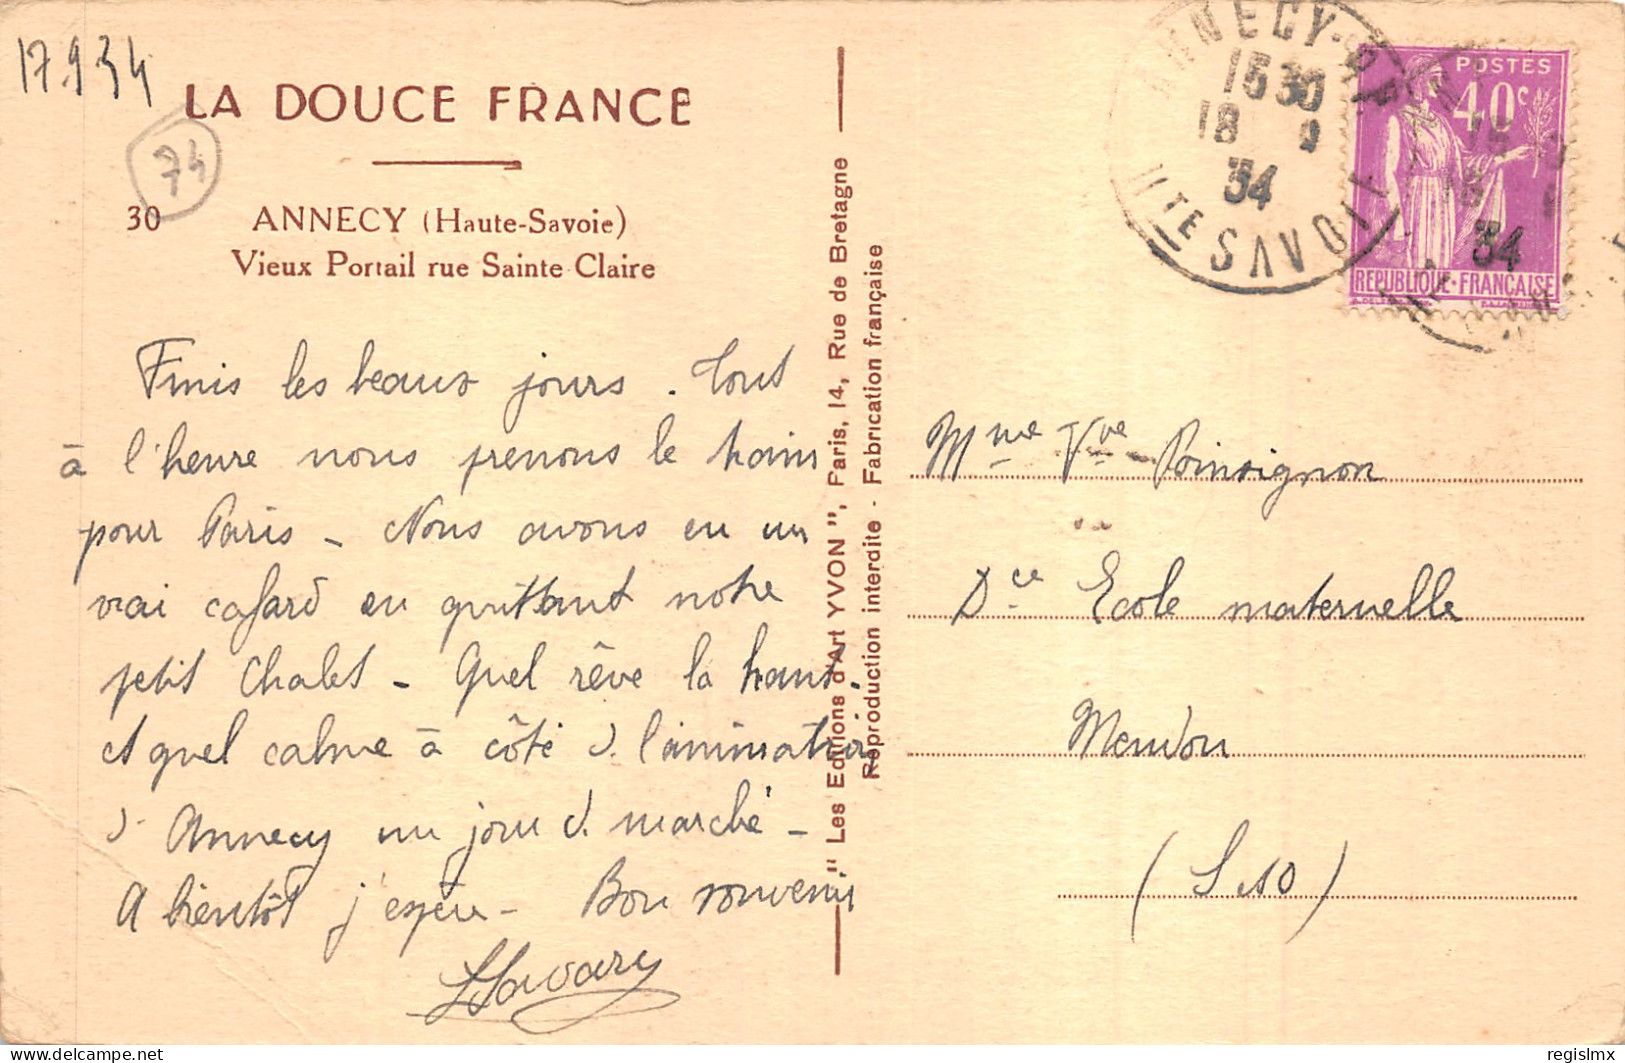 17.9.34
LA DOUCE FRANCE
74
30 ANNECY (Haute-Savoie)
Vieux Portail rue Sainte Claire
Finis les beaux jours. Tout
à l'heure nous prenons le train
pour Paris - Nous avons eu un
vrai cafard en quittant notre
petit Chalet - Quel rêve la haut.
et quel calme à côté d. l'animation
d' Annecy un jour d. marché -
A bientôt j'espère - Bon souvenir
LSavary
" Les Editions d'Art YVON ", Paris, 14, Rue de Bretagne
Reproduction interdite - Fabrication française
ANNECY-RP
15 30
18 9
34
HTE SAVOIE
POSTES
40c
REPUBLIQUE·FRANÇAISE
34
Mme Vve Poinsignon
Dce Ecole maternelle
Meudon
(S et O)
delcampe.net
regislmx